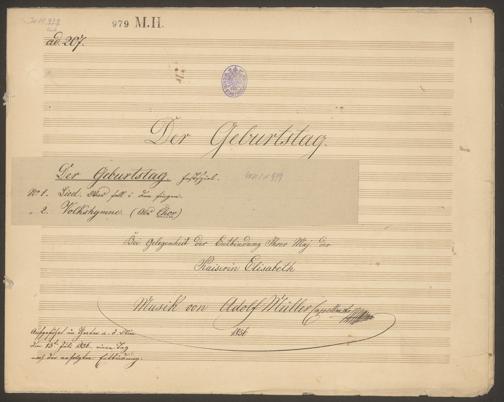 979 M.H.
1
ad. 207.
Der Geburtstag.
Der Geburtstag Festspiel.
No 1. Lied. Was soll i den singen
" 2. Volkshymne. (als Chor)
Bei Gelegenheit der Entbindung Ihrer Maj. der
Kaiserin Elisabeth
Musik von Adolf Müller Capellmstr
1856
Aufgeführt im Theater a. d. Wien
den 15t Juli 1856, einen Tag
nach der erfolgten Entbindung.